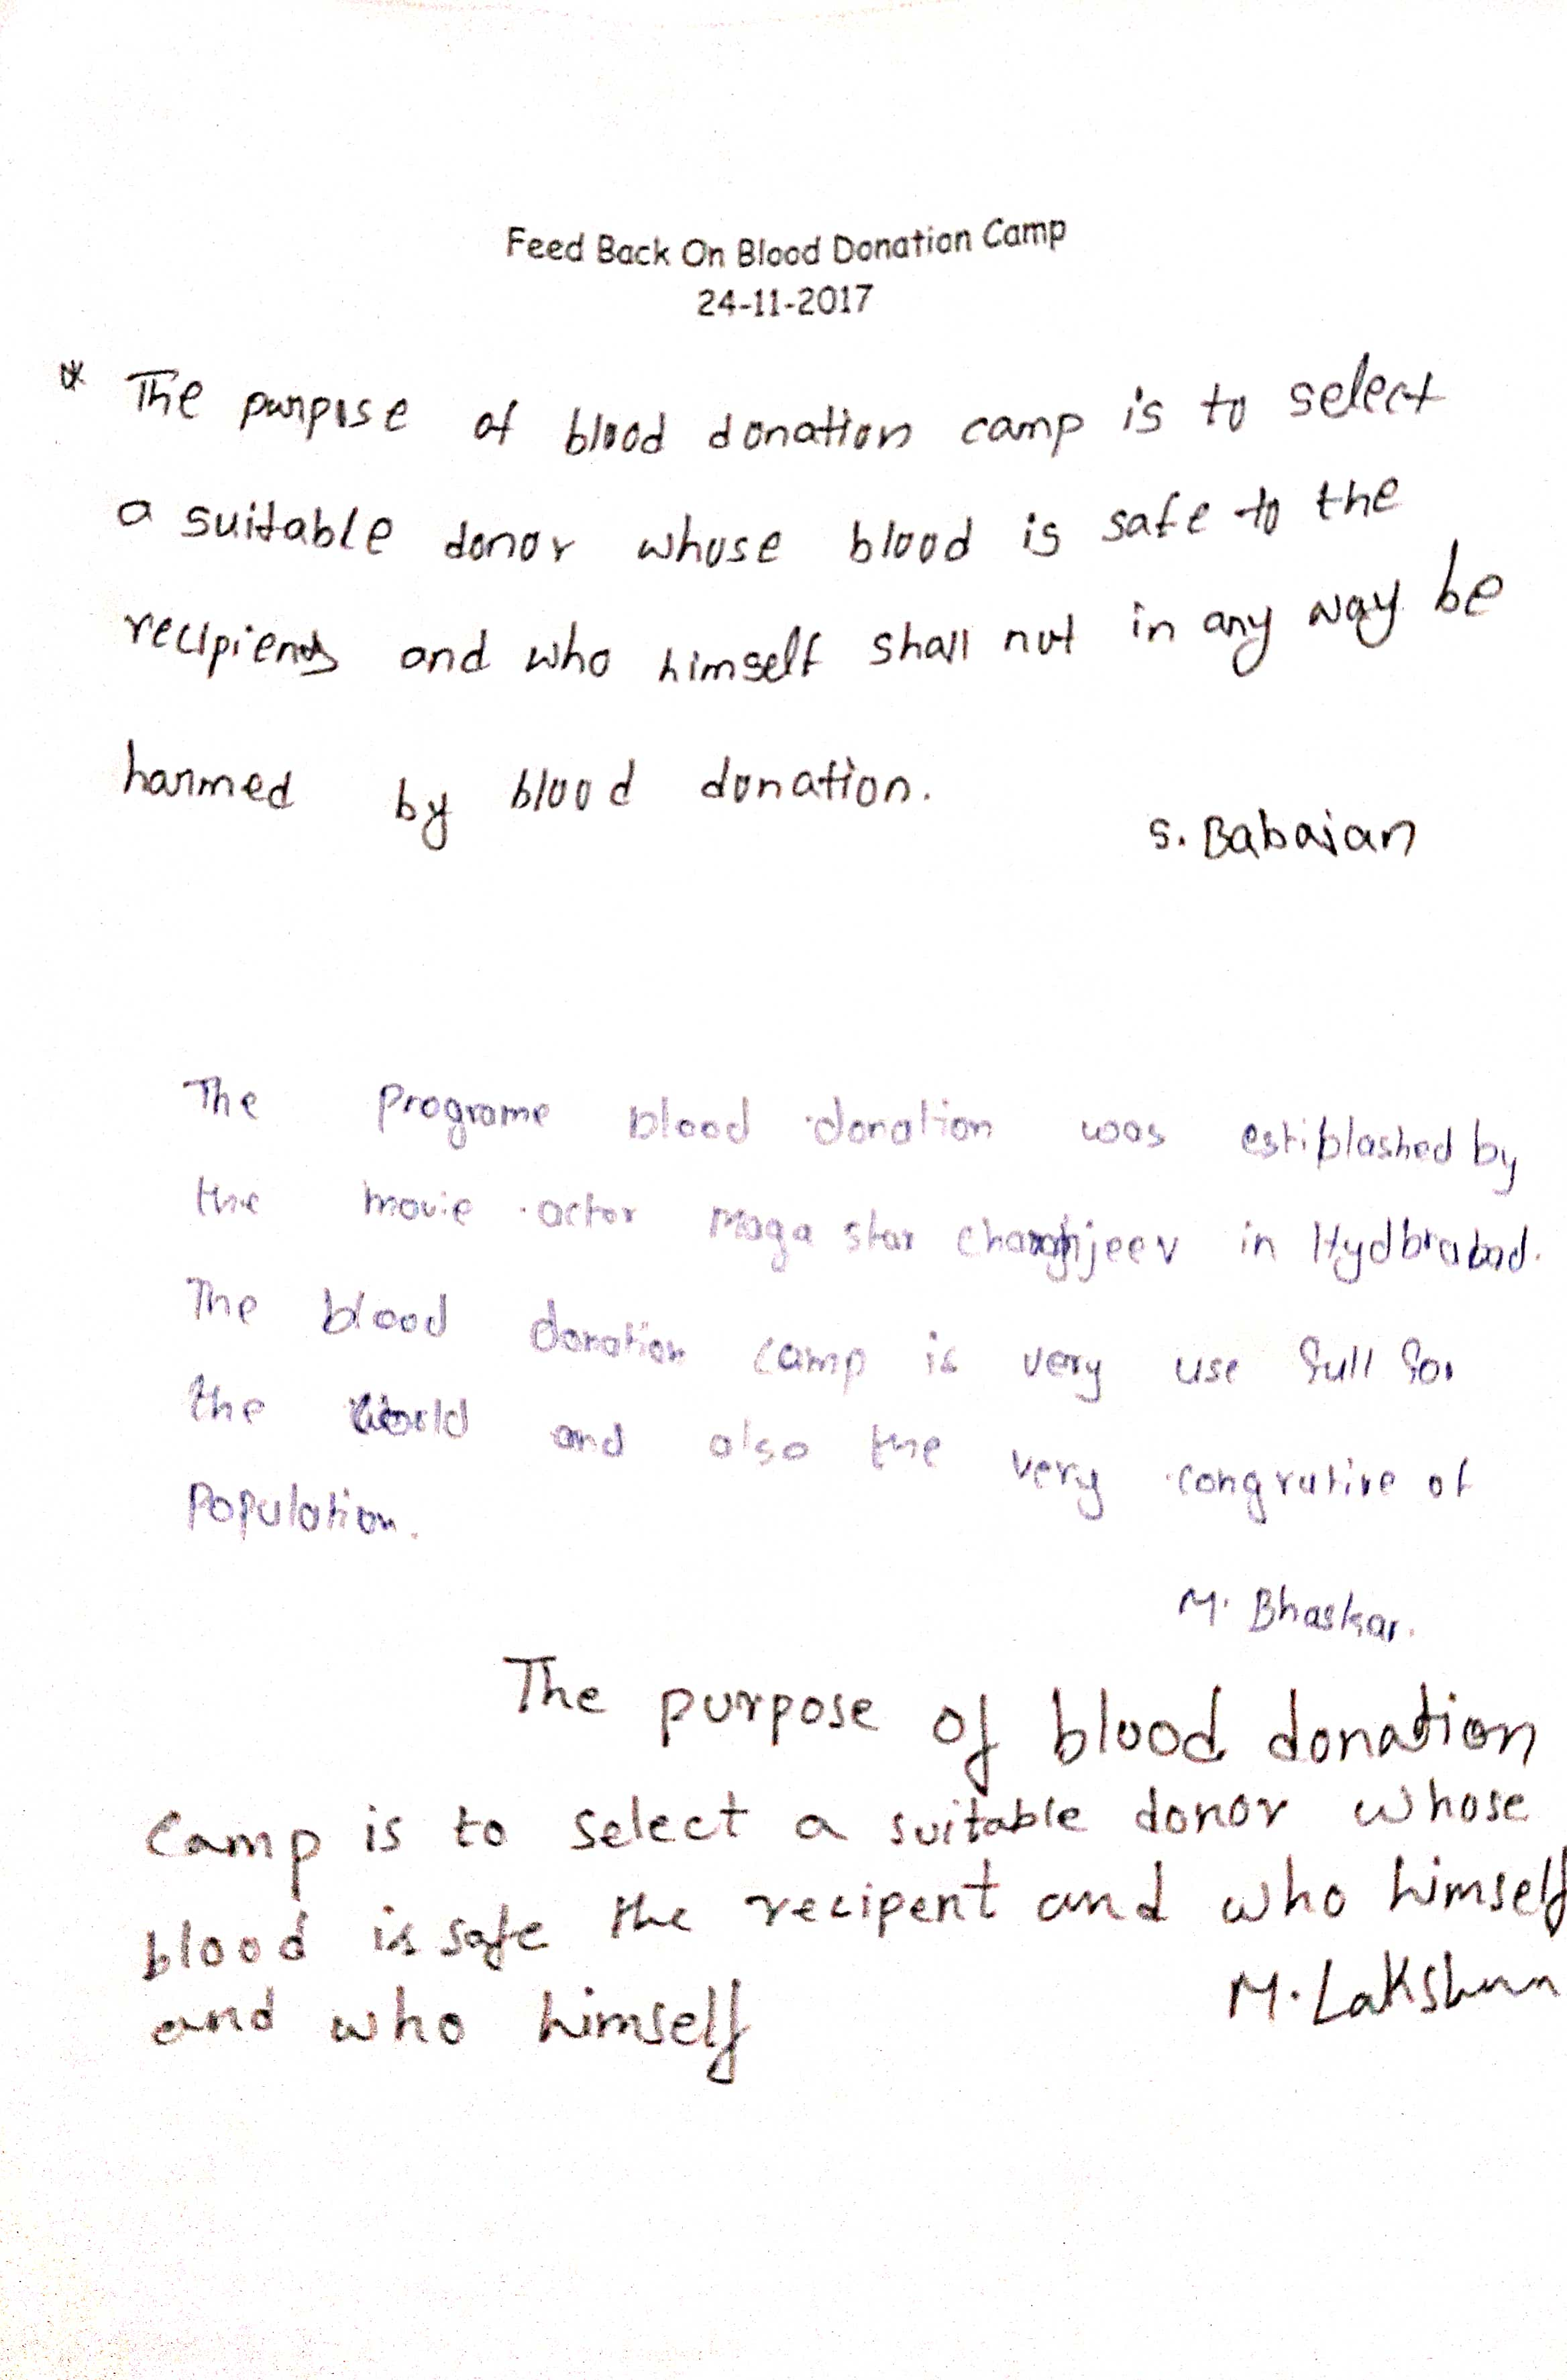 Feed Back On Blood Donation Camp
24-11-2017
* The purpose of blood donation camp is to select
a suitable donor whose blood is safe to the
and who himself shall not in any way be
harmed by blood donation.
S. Babaian
The Programe blood donation was estiblashed by
the movie actor Maga star in
The blood donation camp is very use full for
the world and also the very congrative of
Population.
M. Bhaskar.
The purpose of blood donation
Camp is to select a suitable donor whose
blood is safe the recipent and who himself
and who himself
M. Lakshman